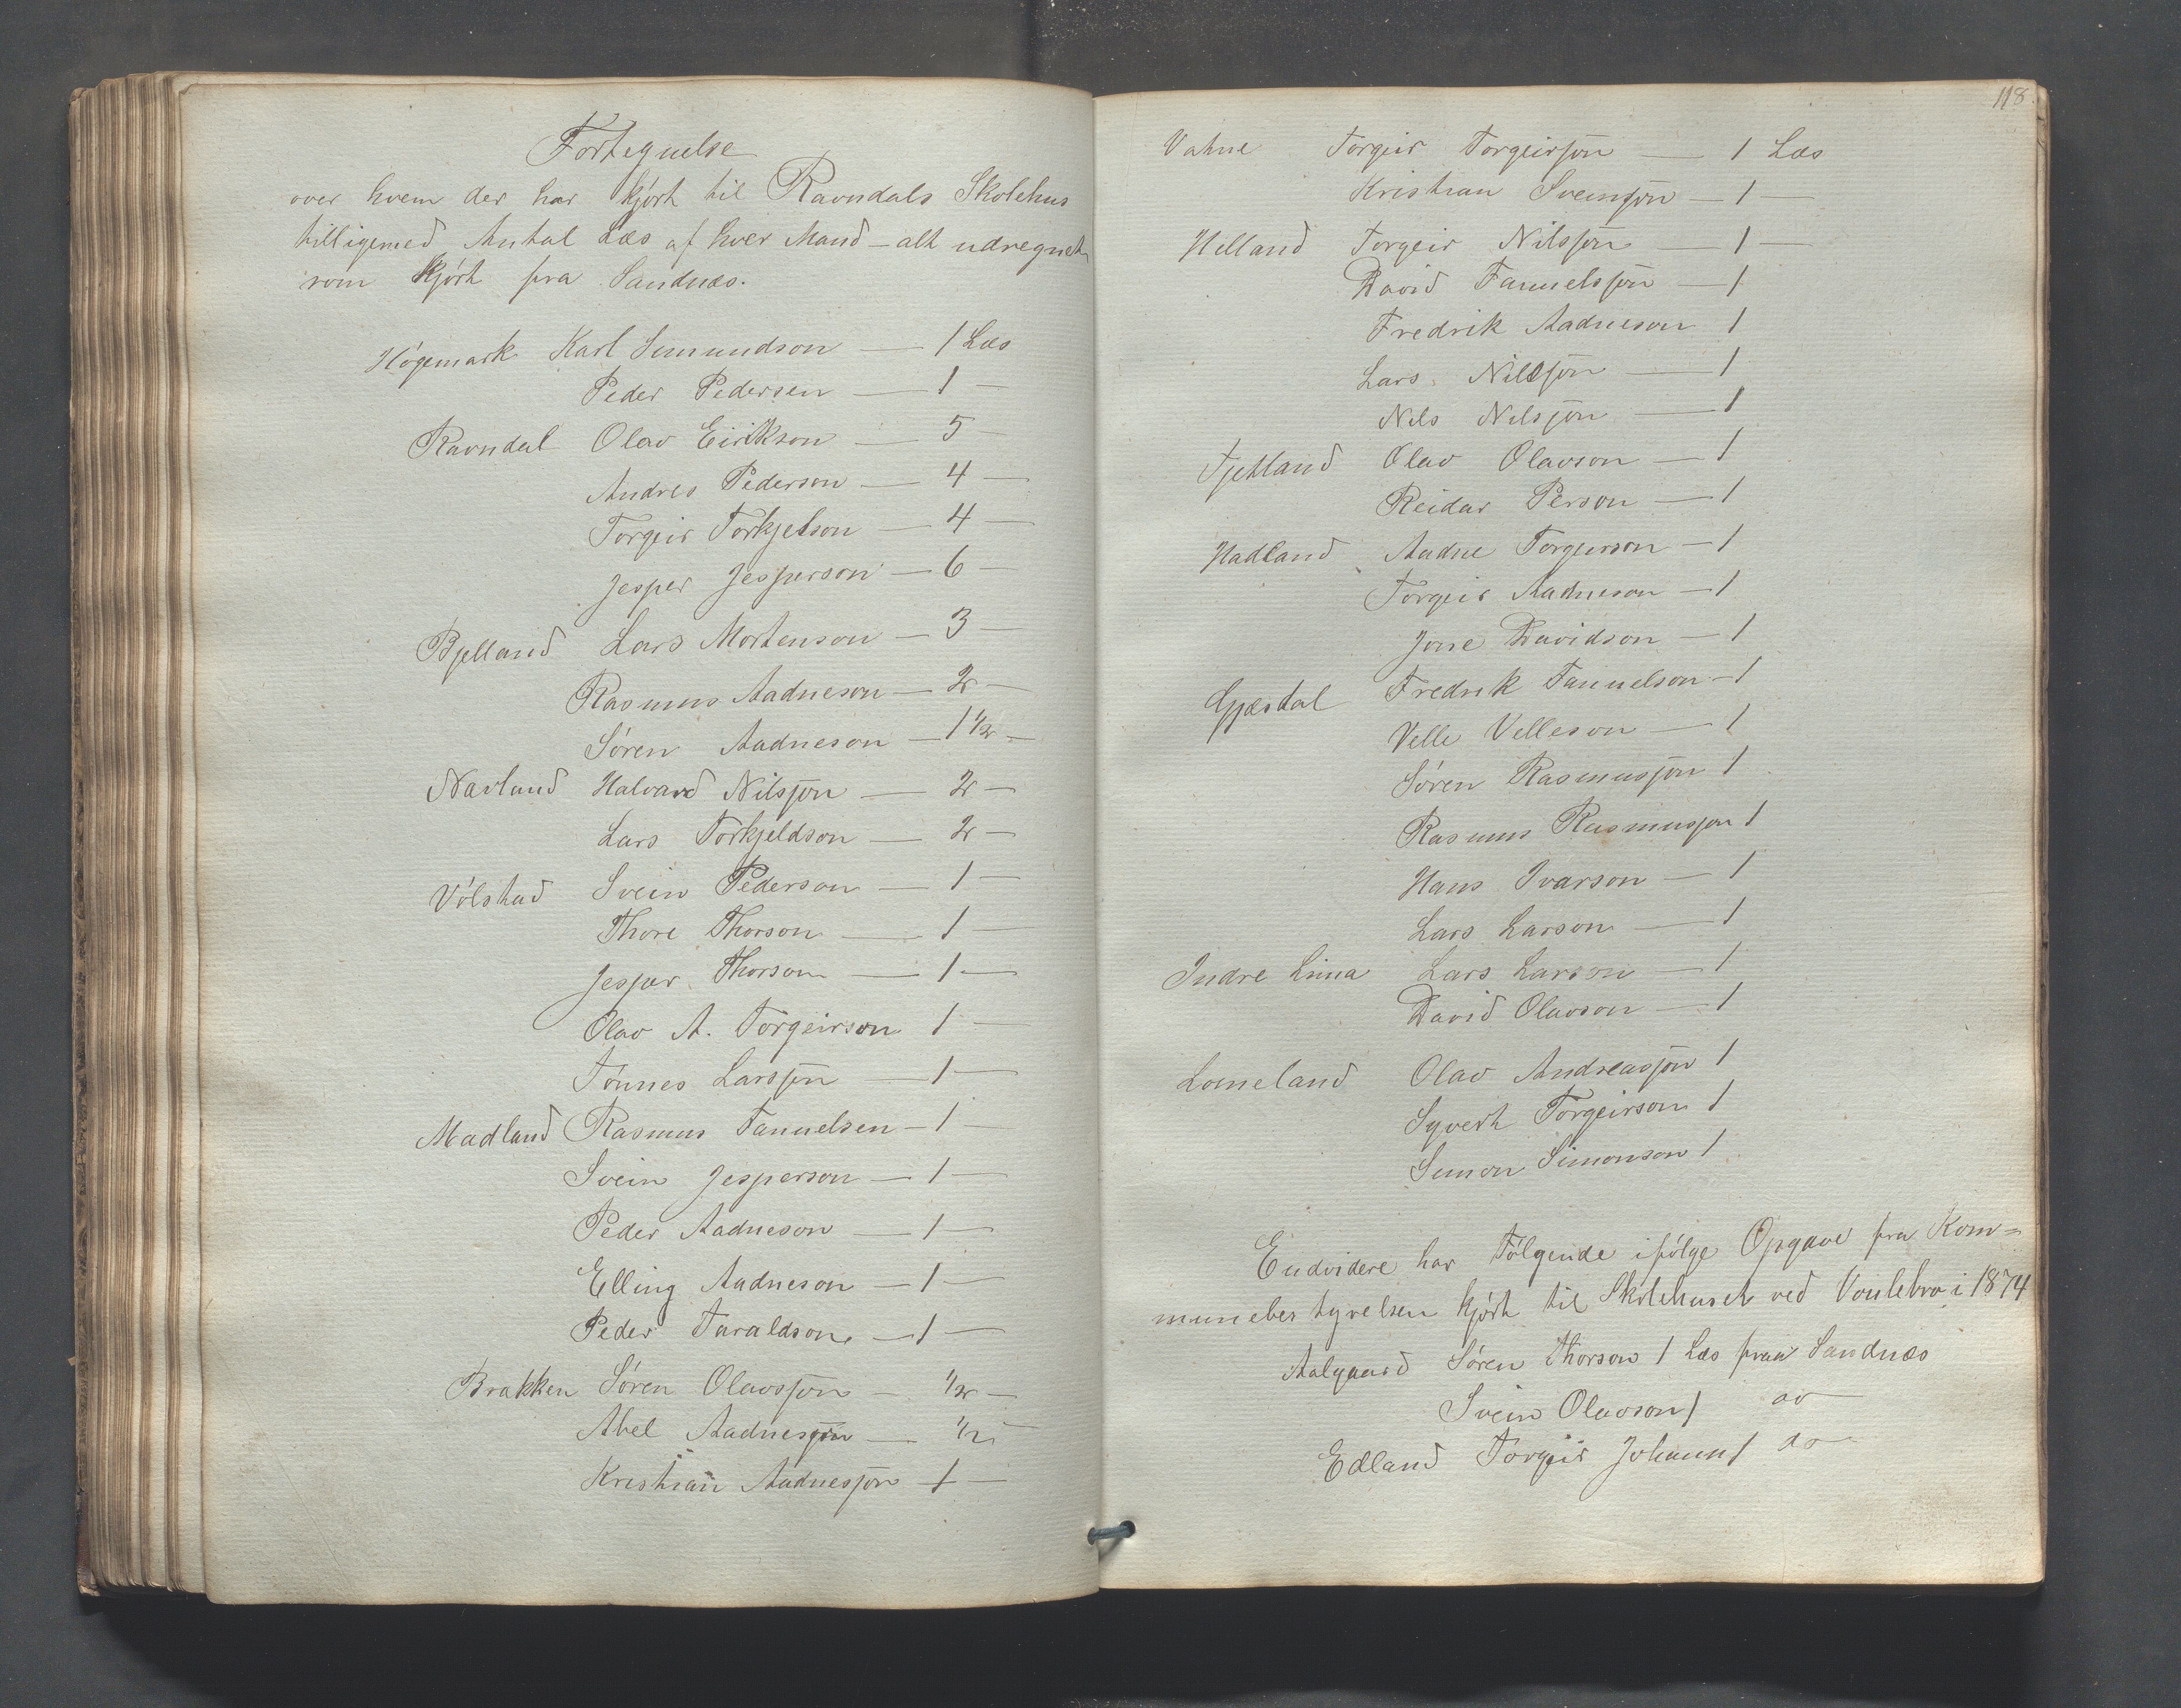 Fortegnelse
over hvem der har kjört til Ravndals Skolehus
tilligemed Antal Læs af hver Mand – alt udregnet
som kjört fra Sandnæs.
Högemark Karl Simundson — 1 Læs
Peder Pedersen — 1 —
Ravndal Olav Eirikson — 5 —
Andres Pederson — 4 —
Torgeir Torkjelson — 4 —
Jesper Jesperson — 6 —
Bjelland Lars Mortenson — 3 —
Rasmus Aadneson — 2 —
Sören Aadneson — 1 1/2 —
Navland Halvard Nilsson — 2 —
Lars Torkjeldson — 2 —
Völstad Svein Pederson — 1 —
Thore Thorson — 1 —
Jesper Thorson — 1 —
Olav A. Torgeirson 1 —
Tönnes Larsson — 1 —
Madland Rasmus Tanuelsen — 1 —
Svein Jesperson — 1 —
Peder Aadneson — 1 —
Elling Aadneson — 1 —
Peder Taraldson — 1 —
Brakken Sören Olavsson — 1/2 —
Abel Aadnesson — 1/2 —
Kristian Aadnesson — 1 —
118
Vatne Torgeir Torgeirson — 1 Læs
Kristian Svenson — 1 —
Helland Torgeir Nilsson — 1 —
David Tanuelsson — 1
Fredrik Aadneson 1
Lars Nilsson — 1
Nils Nilsson — 1
Fjetland Olav Olavson — 1
Reidar Person — 1
Hadland Aadne Torgerson — 1
Torgeir Aadneson — 1
Jone Davidson — 1
Gjesdal Fredrik Tanuelson — 1
Velle Velleson — 1
Sören Rasmusson 1
Rasmus Rasmusson 1
Hans Ivarson — 1
Lars Larson — 1
Indre Lima Lars Larson — 1
David Olavson — 1
Lomeland Olav Andreasson 1
Syvert Torgeirson 1
Simon Simonson 1
Endvidere har Fölgende ifölge Opgave fra Kom=
munebestyrelsen kjört til Skolehuset ved Voulebro i 1874
Aalgaard Sören Thorson 1 Læs fraa Sandnæs
Svein Olavson 1 do
Edland Torgeir Johann 1 do